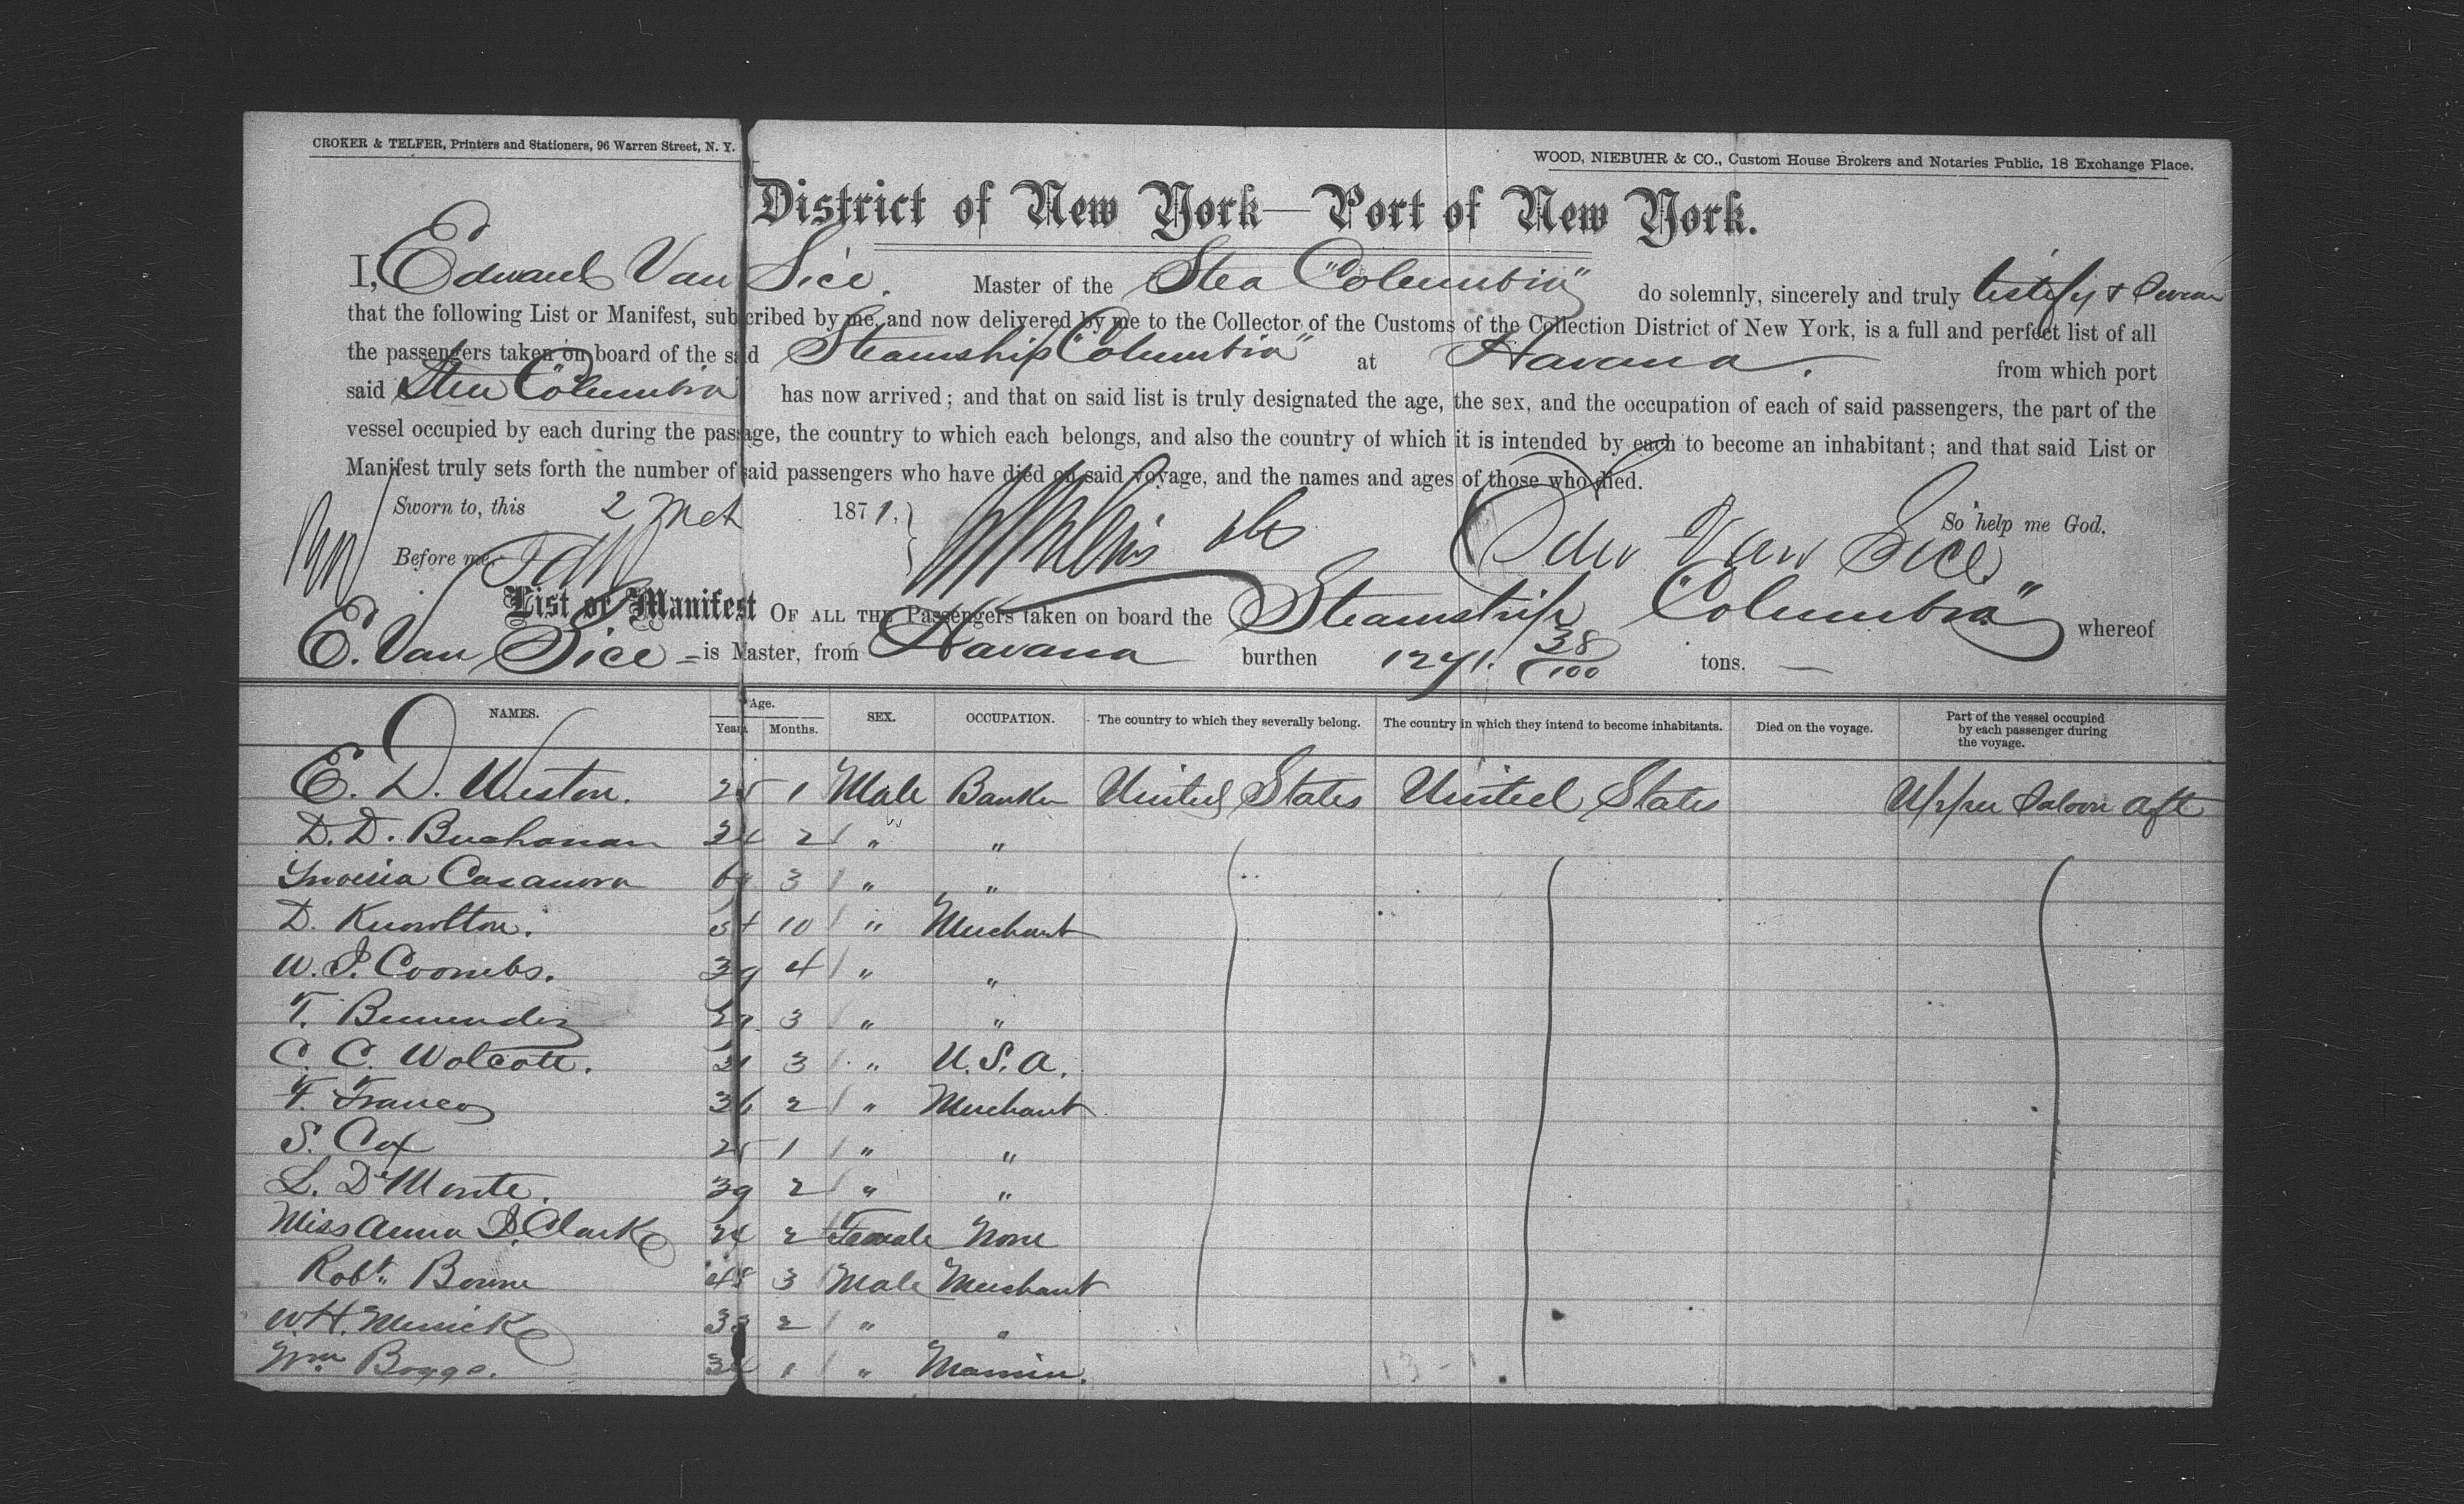 CROKER & TELFER, Printers and Stationers, 96 Warren Street, N. Y.
WOOD, NIEBUHR & CO., Custom House Brokers and Notaries Public, 18 Exchange Place.
District of New York—Port of New York.
I, Edward Van Sice. Master of the Stea "Columbia" do solemnly, sincerely and truly testify &
that the following List or Manifest, subscribed by me, and now delivered by me to the Collector of the Customs of the Collection District of New York, is a full and perfect list of all
the passengers taken on board of the said Steamship "Columbia" at Havana. from which port
said Columbia has now arrived; and that on said list is truly designated the age, the sex, and the occupation of each of said passengers, the part of the
vessel occupied by each during the passage, the country to which each belongs, and also the country of which it is intended by each to become an inhabitant; and that said List or
Manifest truly sets forth the number of said passengers who have died on said voyage, and the names and ages of those who died.
Sworn to, this 2 Mch 1871. So help me God,
Before me, Van Sice
List or Manifest OF ALL THE Passengers taken on board the Steamship "Columbia" whereof
E. Van Sice is Master, from Havana burthen 1271. 38/100 tons.
NAMES. Age. SEX. OCCUPATION. The country to which they severally belong. The country in which they intend to become inhabitants. Died on the voyage. Part of the vessel occupied by each passenger during the voyage.
Years. Months.
E. D. Weston. 25 1 Male Banker United States United States Upper Saloon Aft
D. D. Buchanan 2 " "
Casanova 3 " "
D. Knowlton. 10 " Merchant
W. J. Coombs. 39 4 " "
T. 3 " "
C. C. Wolcott. 3 " U.S.A.
F. Franco 36 2 " Merchant
S. Cox 25 1 " "
L. D'Monte. 39 2 " "
Miss Anna Clark 24 2 Female None
Robt. Bowne 48 3 Male Merchant
W. H. Merrick 33 2 " "
Wm Boggs. 34 1 "